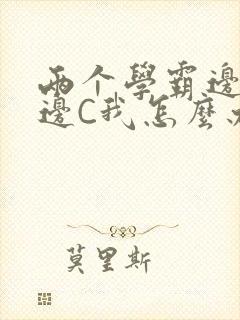 两个學霸邊
邊C我怎麼
莫里斯